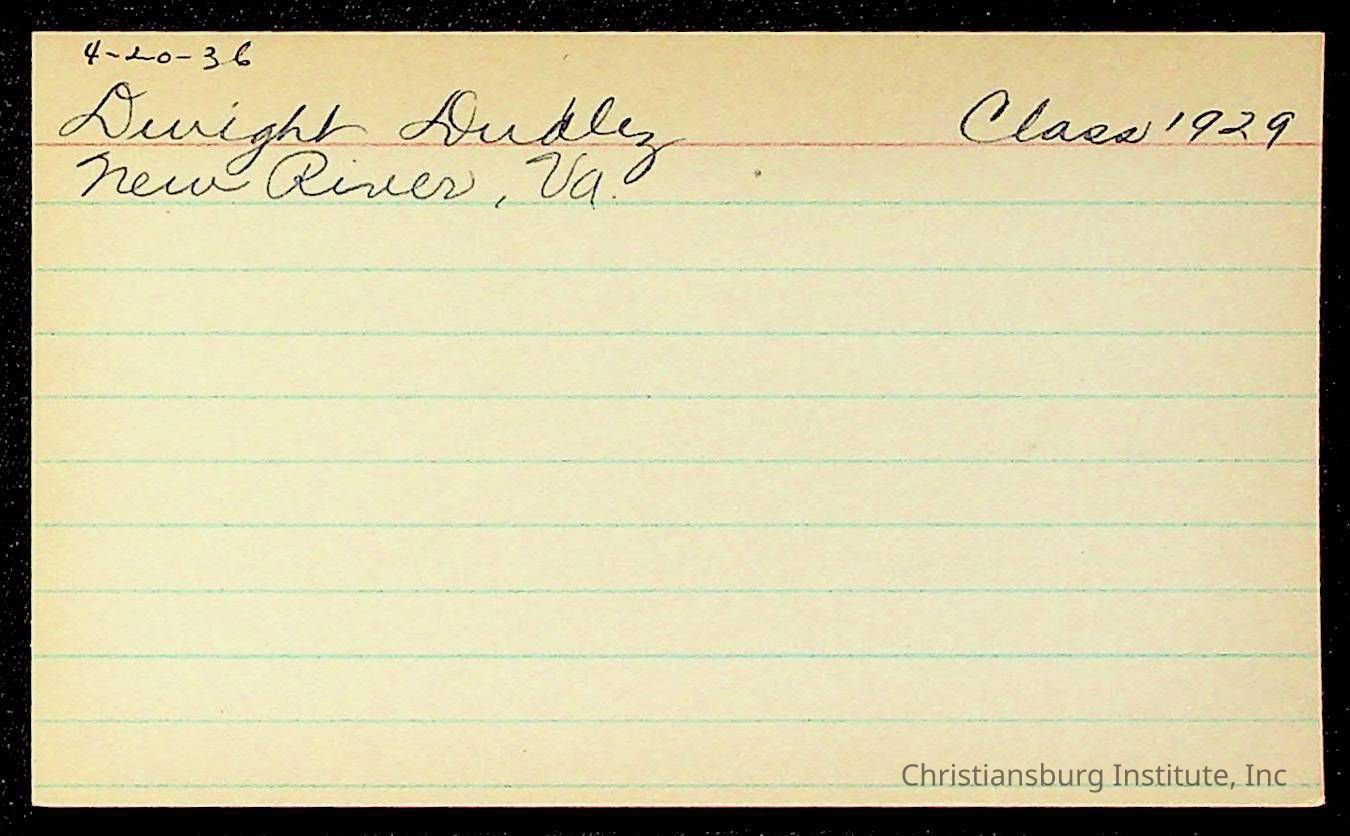 4-20-36
Dwight Dudley Class 1929
New River, Va.
Christiansburg Institute, Inc